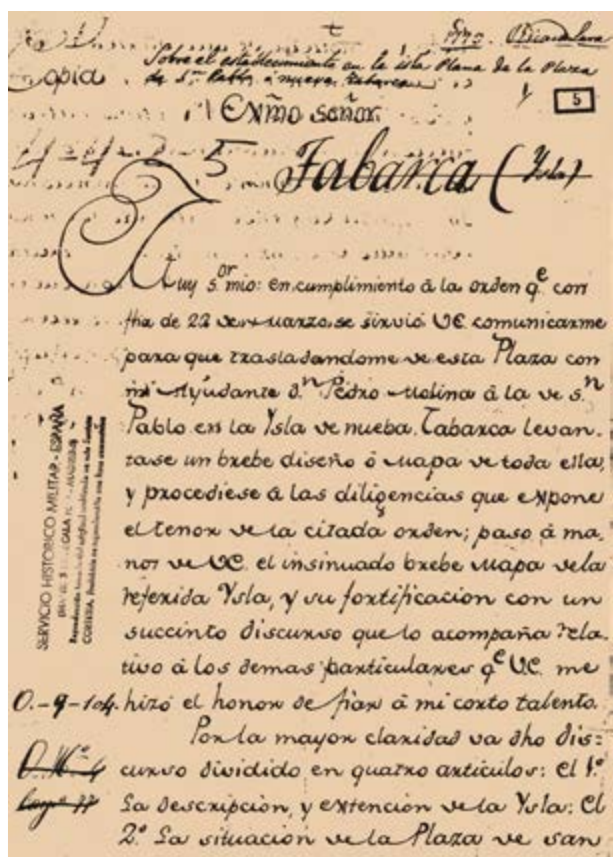 Copia
Sobre el establecimiento en la isla Plana de la Plaza
de Sn. Pablo ó nueva Tabarca
5
Exmo Señor.
4-4-5
Tabarca (Ysla)
Muy sor. mio: en cumplimiento á la orden qe. con
fha de 22 de Marzo se sirvió VE comunicarme
para que trasladandome de esta Plaza con
mi Ayudante Dn Pedro Molina á la de Sn.
Pablo en la Ysla de nueba Tabarca levan-
tase un brebe diseño ó Mapa de toda ella,
y procediese á las diligencias que expone
el tenor de la citada orden; paso á ma-
nos de VE. el insinuado brebe Mapa dela
referida Ysla, y su fortificacion con un
succinto discurso que lo acompaña rela-
tivo á los demas particulares qe VE. me
0.-9-104. hizó el honor de fiar á mi corto talento.
Por la mayor claridad va dho dis-
curso dividido en quatro articulos: El 1º.
La descripcion, y extención de la Ysla: El
2º. La situacion de la Plaza de san
SERVICIO HISTORICO MILITAR - ESPAÑA